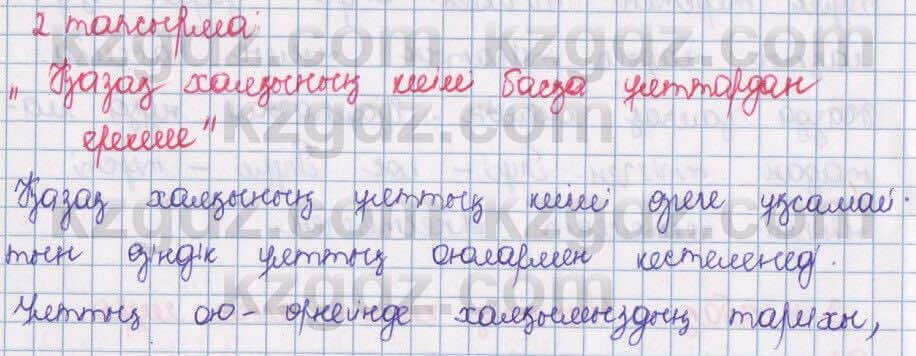 2 тапсырма
„ Қазақ халқының киімі басқа ұлттардан
ерекше"
Қазақ халқының ұлттық киімі өзгеге ұқсамай-
тын өзіндік ұлттық оюлармен кестеленеді.
Ұлттық ою-өрнегінде халқымыздың тарихы,
kzgdz.com